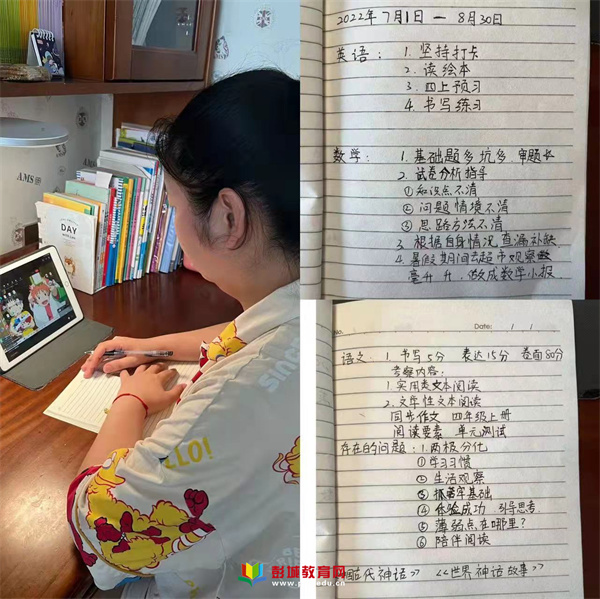 DAY
AMS
HELLO!
2022年7月1日 — 8月30日
英语： 1. 坚持打卡
2. 读绘本
3. 四上预习
4. 书写练习
数学： 1. 基础题多坑多 审题
2. 试卷分析指导
①知识点不清
②问题情境不清
③思路方法不清
3. 根据自身情况 查漏补缺
4. 暑假期间去超市观察
毫升 升，做成数学小报
No.
Date: / /
语文：1. 书写5分 表达15分 卷面80分
考察内容：
1. 实用类文本阅读
2. 文学性文本阅读
同步作文 四年级上册
阅读要素 单元测试
存在的问题：1. 两极分化
①学习习惯
②生活观察
③抓基础
④体验成功 引导思考
⑤薄弱点在哪里？
⑥陪伴阅读
代神话》 《世界神话故事》
彭城教育网
www.pcedu.com.cn